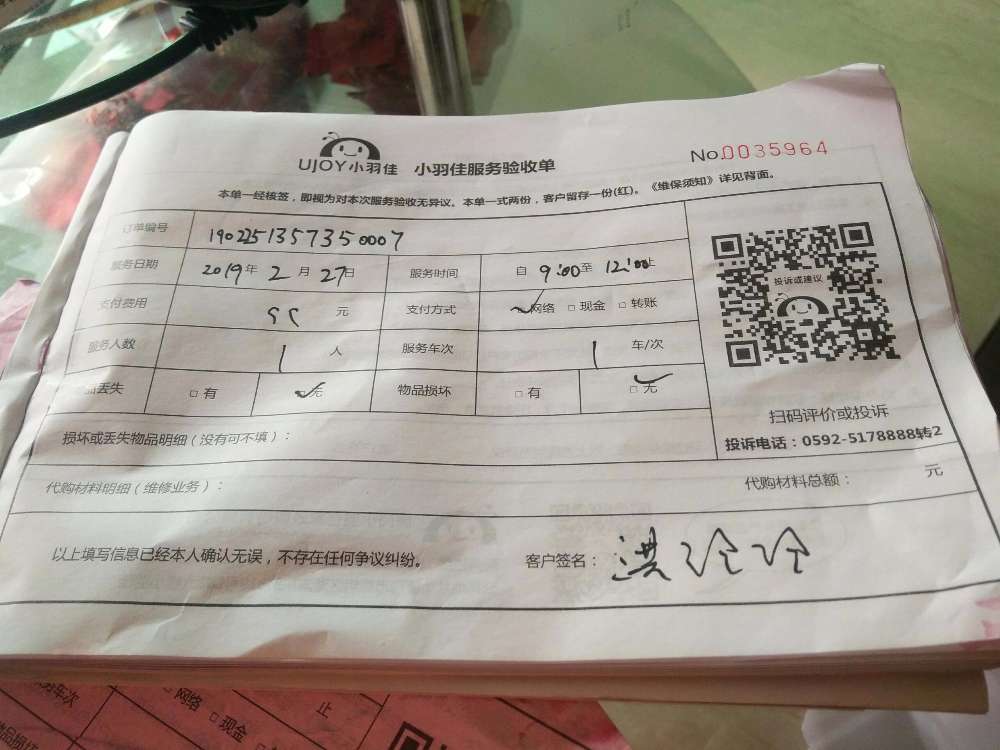 UJOY小羽佳 小羽佳服务验收单 No.0035964
本单一经核签，即视为对本次服务验收无异议。本单一式两份，客户留存一份(红)。《维保须知》详见背面。
订单编号 1902251357350007
服务日期 2019年2月27日 服务时间 自9:00至12:00止
支付费用 99 元 支付方式 网络 □现金 □转账
服务人数 1 人 服务车次 1 车/次
品丢失 □有 □无 物品损坏 □有 □无
投诉或建议
扫码评价或投诉
投诉电话：0592-5178888转2
损坏或丢失物品明细（没有可不填）：
代购材料明细（维修业务）： 代购材料总额： 元
以上填写信息已经本人确认无误，不存在任何争议纠纷。 客户签名：洪玲玲
务车次 □网络 □现金 止
物品损坏